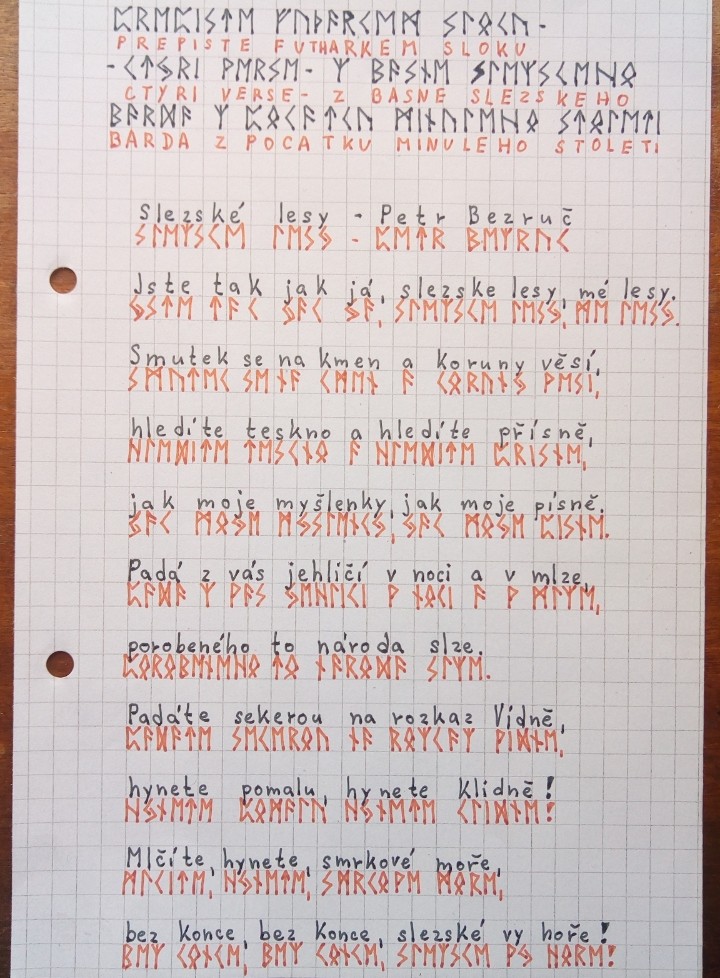 ᛈᚱᛖᛈᛁᛋᛏᛖ ᚠᚢᚦᚨᚱᚲᛖᛗ ᛋᛚᛟᚲᚢ -
PREPISTE FUTHARKEM SLOKU
- ᚲᛏᛃᚱᛁ ᚹᛖᚱᛋᛖ - ᛉ ᛒᚨᛋᚾᛖ ᛋᛚᛖᛉᛋᚲᛖᚺᛟ
CTYRI VERSE - Z BASNE SLEZSKEHO
ᛒᚨᚱᛞᚨ ᛉ ᛈᛟᚲᚨᛏᚲᚢ ᛗᛁᚾᚢᛚᛖᚺᛟ ᛋᛏᛟᛚᛖᛏᛁ
BARDA Z POCATKU MINULEHO STOLETI
Slezské lesy - Petr Bezruč
ᛋᛚᛖᛉᛋᚲᛖ ᛚᛖᛋᛃ - ᛈᛖᛏᚱ ᛒᛖᛉᚱᚢᚲ
Jste tak jak já, slezske lesy, mé lesy.
ᛃᛋᛏᛖ ᛏᚨᚲ ᛃᚨᚲ ᛃᚨ, ᛋᛚᛖᛉᛋᚲᛖ ᛚᛖᛋᛃ, ᛗᛖ ᛚᛖᛋᛃ.
Smutek se na kmen a koruny věsí,
ᛋᛗᚢᛏᛖᚲ ᛋᛖ ᚾᚨ ᚲᛗᛖᚾ ᚨ ᚲᛟᚱᚢᚾᛃ ᚹᛖᛋᛁ,
hledíte teskno a hledíte přísně,
ᚺᛚᛖᛞᛁᛏᛖ ᛏᛖᛋᚲᚾᛟ ᚨ ᚺᛚᛖᛞᛁᛏᛖ ᛈᚱᛁᛋᚾᛖ,
jak moje myšlenky, jak moje písně.
ᛃᚨᚲ ᛗᛟᛃᛖ ᛗᛃᛋᛚᛖᚾᚲᛃ, ᛃᚨᚲ ᛗᛟᛃᛖ ᛈᛁᛋᚾᛖ.
Padá z vás jehličí v noci a v mlze,
ᛈᚨᛞᚨ ᛉ ᚹᚨᛋ ᛃᛖᚺᛚᛁᚲᛁ ᚹ ᚾᛟᚲᛁ ᚨ ᚹ ᛗᛚᛉᛖ,
porobeného to národa slze.
ᛈᛟᚱᛟᛒᛖᚾᛖᚺᛟ ᛏᛟ ᚾᚨᚱᛟᛞᚨ ᛋᛚᛉᛖ.
Padáte sekerou na rozkaz Vídně,
ᛈᚨᛞᚨᛏᛖ ᛋᛖᚲᛖᚱᛟᚢ ᚾᚨ ᚱᛟᛉᚲᚨᛉ ᚹᛁᛞᚾᛖ,
hynete pomalu, hynete klidně!
ᚺᛃᚾᛖᛏᛖ ᛈᛟᛗᚨᛚᚢ ᚺᛃᚾᛖᛏᛖ ᚲᛚᛁᛞᚾᛖ!
Mlčíte, hynete, smrkové moře,
ᛗᛚᚲᛁᛏᛖ, ᚺᛃᚾᛖᛏᛖ, ᛋᛗᚱᚲᛟᚹᛖ ᛗᛟᚱᛖ,
bez konce, bez konce, slezské vy hoře!
ᛒᛖᛉ ᚲᛟᚾᚲᛖ, ᛒᛖᛉ ᚲᛟᚾᚲᛖ, ᛋᛚᛖᛉᛋᚲᛖ ᚹᛃ ᚺᛟᚱᛖ!